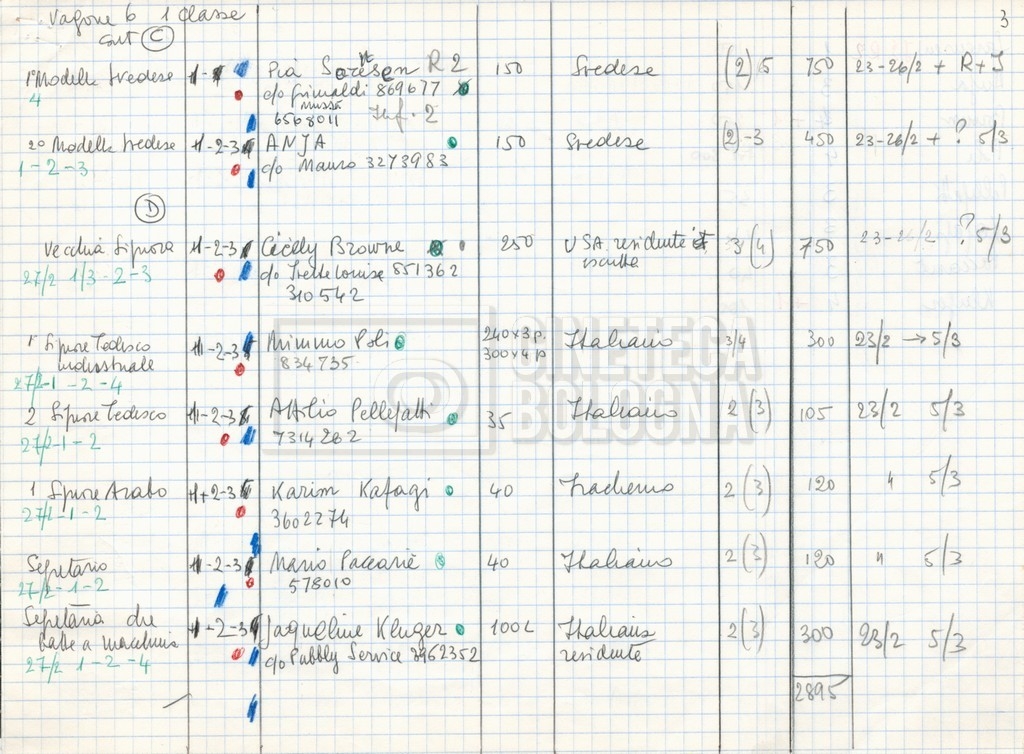 Vagone 6 1 Classe 3
Cont C
1ª Modella Svedese 1- Pia Sorensen R 2 150 Svedese (2) 5 750 23-26/2 + R+I
4 c/o Grimaldi 869677
Musso
6568011 Inf. 2
2ª Modella Svedese 1-2-3 ANJA 150 Svedese (2)-3 450 23-26/2 + ? 5/3
1-2-3 c/o Mauro 3273983
D
Vecchia Signora 1-2-3 Cicely Browne 250 USA. residente 3(4) 750 23-26/2 ? 5/3
27/2 1/3-2-3 c/o 851362
310542
1º Signore Tedesco 1-2-3 Mimmo Poli 240x3 p. Italiano 3/4 300 23/2 → 5/3
industriale 834735 300x4 p
27/2-1-2-4
2 Signore Tedesco 1-2-3 Attilio Pellegatti 35 Italiano 2(3) 105 23/2 5/3
27/2-1-2 7314262
1 Signore Arabo 1+2-3 Karim Kafagi 40 2(3) 120 " 5/3
27/2-1-2 3602274
Segretario 1-2-3 Mario 40 Italiano 2(3) 120 " 5/3
27/2-1-2 578010
Segretaria che 1-2-3 Jaqueline Kluger 100L Italiana 2(3) 300 23/2 5/3
batte a macchina c/o Pubbly Service 3962352 residente
27/2 1-2-4
2895
CINETECA
BOLOGNA